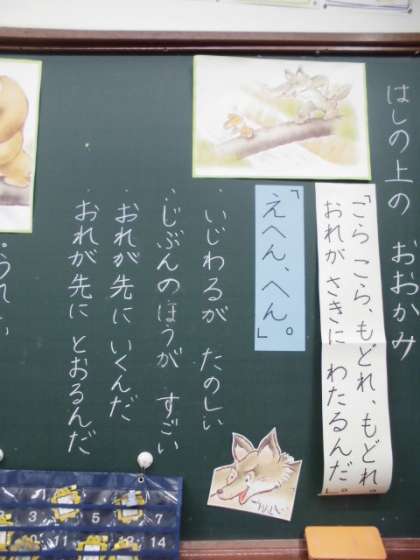 はしの上の おおかみ
「こら こら、もどれ、もどれ。
おれが さきに わたるんだ。」
「えへん、へん。」
・いじわるが たのしい
・じぶんのほうが すごい
・おれが先に いくんだ
・おれが先に とおるんだ
・うれしい
2 3 5 7
10 11 12 14